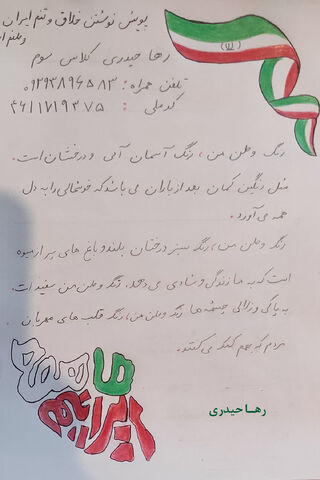 پویش نوشتن خلاق و تنم ایران
وطنم
رها حیدری کلاس سوم
تلفن همراه: ۰۹۲۹۳۸۹۶۵۸۳
کدملی: ۴۶۱۱۷۱۹۳۷۵
رنگ وطن من، رنگ آسمان آبی و درخشان است.
مثل رنگین کمان بعد از باران می باشد که خوشحالی را به دل
همه می آورد.
رنگ وطن من، رنگ سبز درختان بلند و باغ های پر از میوه
است که به ما زندگی و شادی می دهد. رنگ وطن من سفید است.
به پاکی و زلالی چشمه ها رنگ وطن من، رنگ قلب های مهربان
مردم که بهم کمک می کنند.
ما همه
ایرانیم
رها حیدری